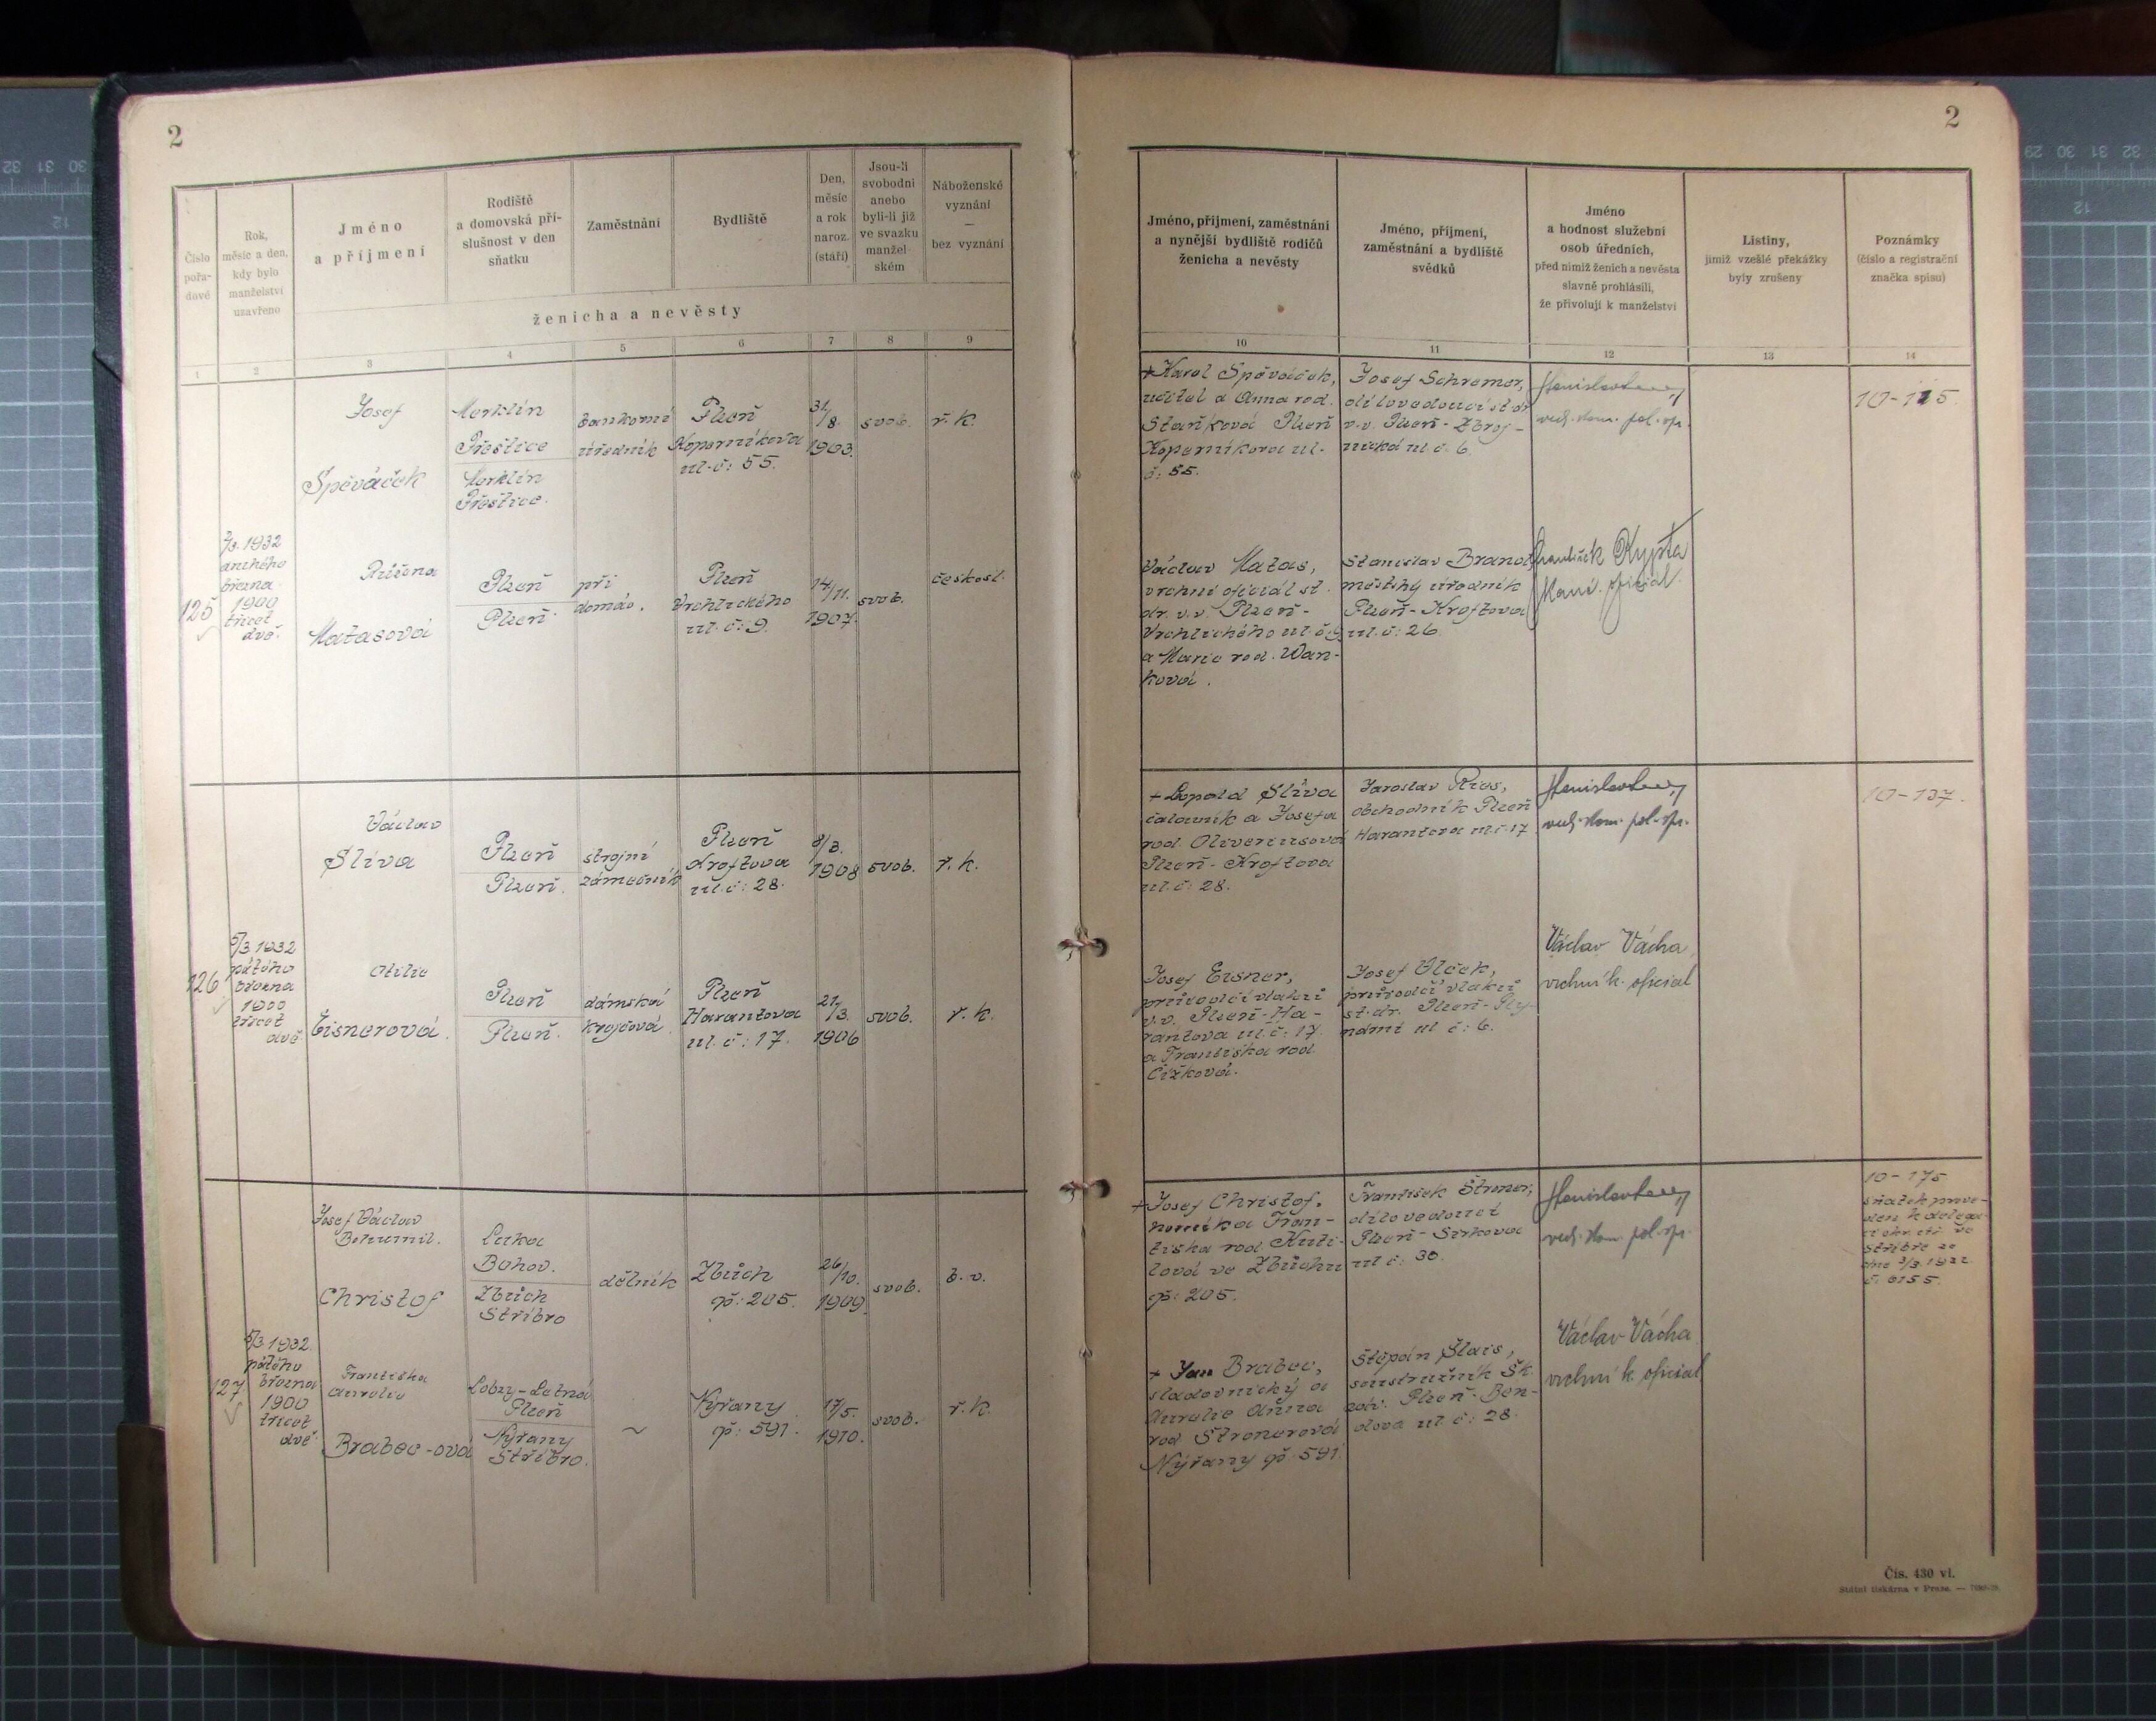 2
Číslo
pořa-
dové
Rok,
měsíc a den,
kdy bylo
manželství
uzavřeno
Jméno
a příjmení
Rodiště
a domovská pří-
slušnost v den
sňatku
Zaměstnání
Bydliště
Den,
měsíc
a rok
naroz.
(stáří)
Jsou-li
svobodni
anebo
byli-li již
ve svazku
manžel-
ském
Náboženské
vyznání
—
bez vyznání
ženicha a nevěsty
1 2 3 4 5 6 7 8 9
125
2/3. 1932
druhého
března
1900
třicet
dvě.
Josef
Spěváček
Merklín
Přeštice
Merklín
Přeštice.
bankovní
úředník
Plzeň
Koperníkova
ul. č: 55.
31/8.
1903.
svob.
ř. k.
Růžena
Matasová
Plzeň
Plzeň.
při
domác.
Plzeň
Vrchlického
ul. č: 9.
14/11.
1907.
svob.
českosl.
126
5/3 1932
pátého
března
1900
třicet
dvě
Václav
Slíva
Plzeň
Plzeň.
strojní
zámečník
Plzeň
Kroftova
ul. č: 28.
8/3.
1908
svob.
ř. k.
Otilie
Eisnerová.
Plzeň
Plzeň.
dámská
krejčová.
Plzeň
Harantova
ul. č: 17.
21/3.
1906
svob.
ř. k.
127
5/3 1932.
pátého
března
1900
třicet
dvě.
Josef Václav
Bohumil.
Christof
Luka
Bohov.
Zbůch
Stříbro
dělník
Zbůch
čp: 205.
26/10.
1909.
svob.
b. v.
Františka
Aurelie
Brabec-ová
Lobzy-Letná
Plzeň
Nýřany
Stříbro.
~
Nýřany
čp: 591.
17/5.
1910.
svob.
ř. k.
2
Jméno, příjmení, zaměstnání
a nynější bydliště rodičů
ženicha a nevěsty
Jméno, příjmení,
zaměstnání a bydliště
svědků
Jméno
a hodnost služební
osob úředních,
před nimiž ženich a nevěsta
slavně prohlásili,
že přivolují k manželství
Listiny,
jimiž vzešlé překážky
byly zrušeny
Poznámky
(číslo a registrační
značka spisu)
10 11 12 13 14
+ Karel Spěváček,
učitel a Anna rod.
Staňková Plzeň
Koperníkova ul.
č: 55.
Josef Schremer,
dílovedoucí st. dr.
v.v. Plzeň - Zbroj-
nická ul č. 6.
vrch. kom. pol. spr.
10-115
Václav Matas,
vrchní oficiál st.
dr. v.v. Plzeň -
Vrchlického ul. č: 9
a Marie rod. Wan-
ková.
Stanislav Brandl,
městský úředník
Plzeň - Kroftova
ul. č: 26.
František Kypta
kanc. oficiál.
+ Leopold Slíva
čalouník a Josefa
rod. Oliveriusová
Plzeň - Kroftova
ul. č: 28.
Jaroslav Rius,
obchodník Plzeň
Harantova ul. č. 17
vrch. kom. pol. spr.
10-137.
Josef Eisner,
průvodčí vlaků
v.v. Plzeň - Ha-
rantova ul. č: 17.
a Františka rod.
Čížková.
Josef Vlček,
průvodčí vlaků
st. dr. Plzeň - Ply-
nární ul č: 6.
Václav Vácha
vrchní k. oficiál
+ Josef Christof,
horník a Fran-
tiska rod Kuti-
lová ve Zbůchu
čp: 205.
František Štroner,
dílovedoucí
Plzeň - Sirková
ul č: 30.
vrch. kom. pol. spr.
10-175
sňatek prove-
den k delega-
ci okr. úř. ve
Stříbře ze
dne 3/3. 1932
č. 6155.
+ Jan Brabec,
sladovnický a
Aurelie Anna
rod Stronerová
Nýřany čp. 591.
Štěpán Šlais,
soustružník Šk.
záv. Plzeň - Ben-
dova ul č: 28.
Václav Vácha
vrchní k. oficiál
Čís. 430 vl.
Státní tiskárna v Praze. —